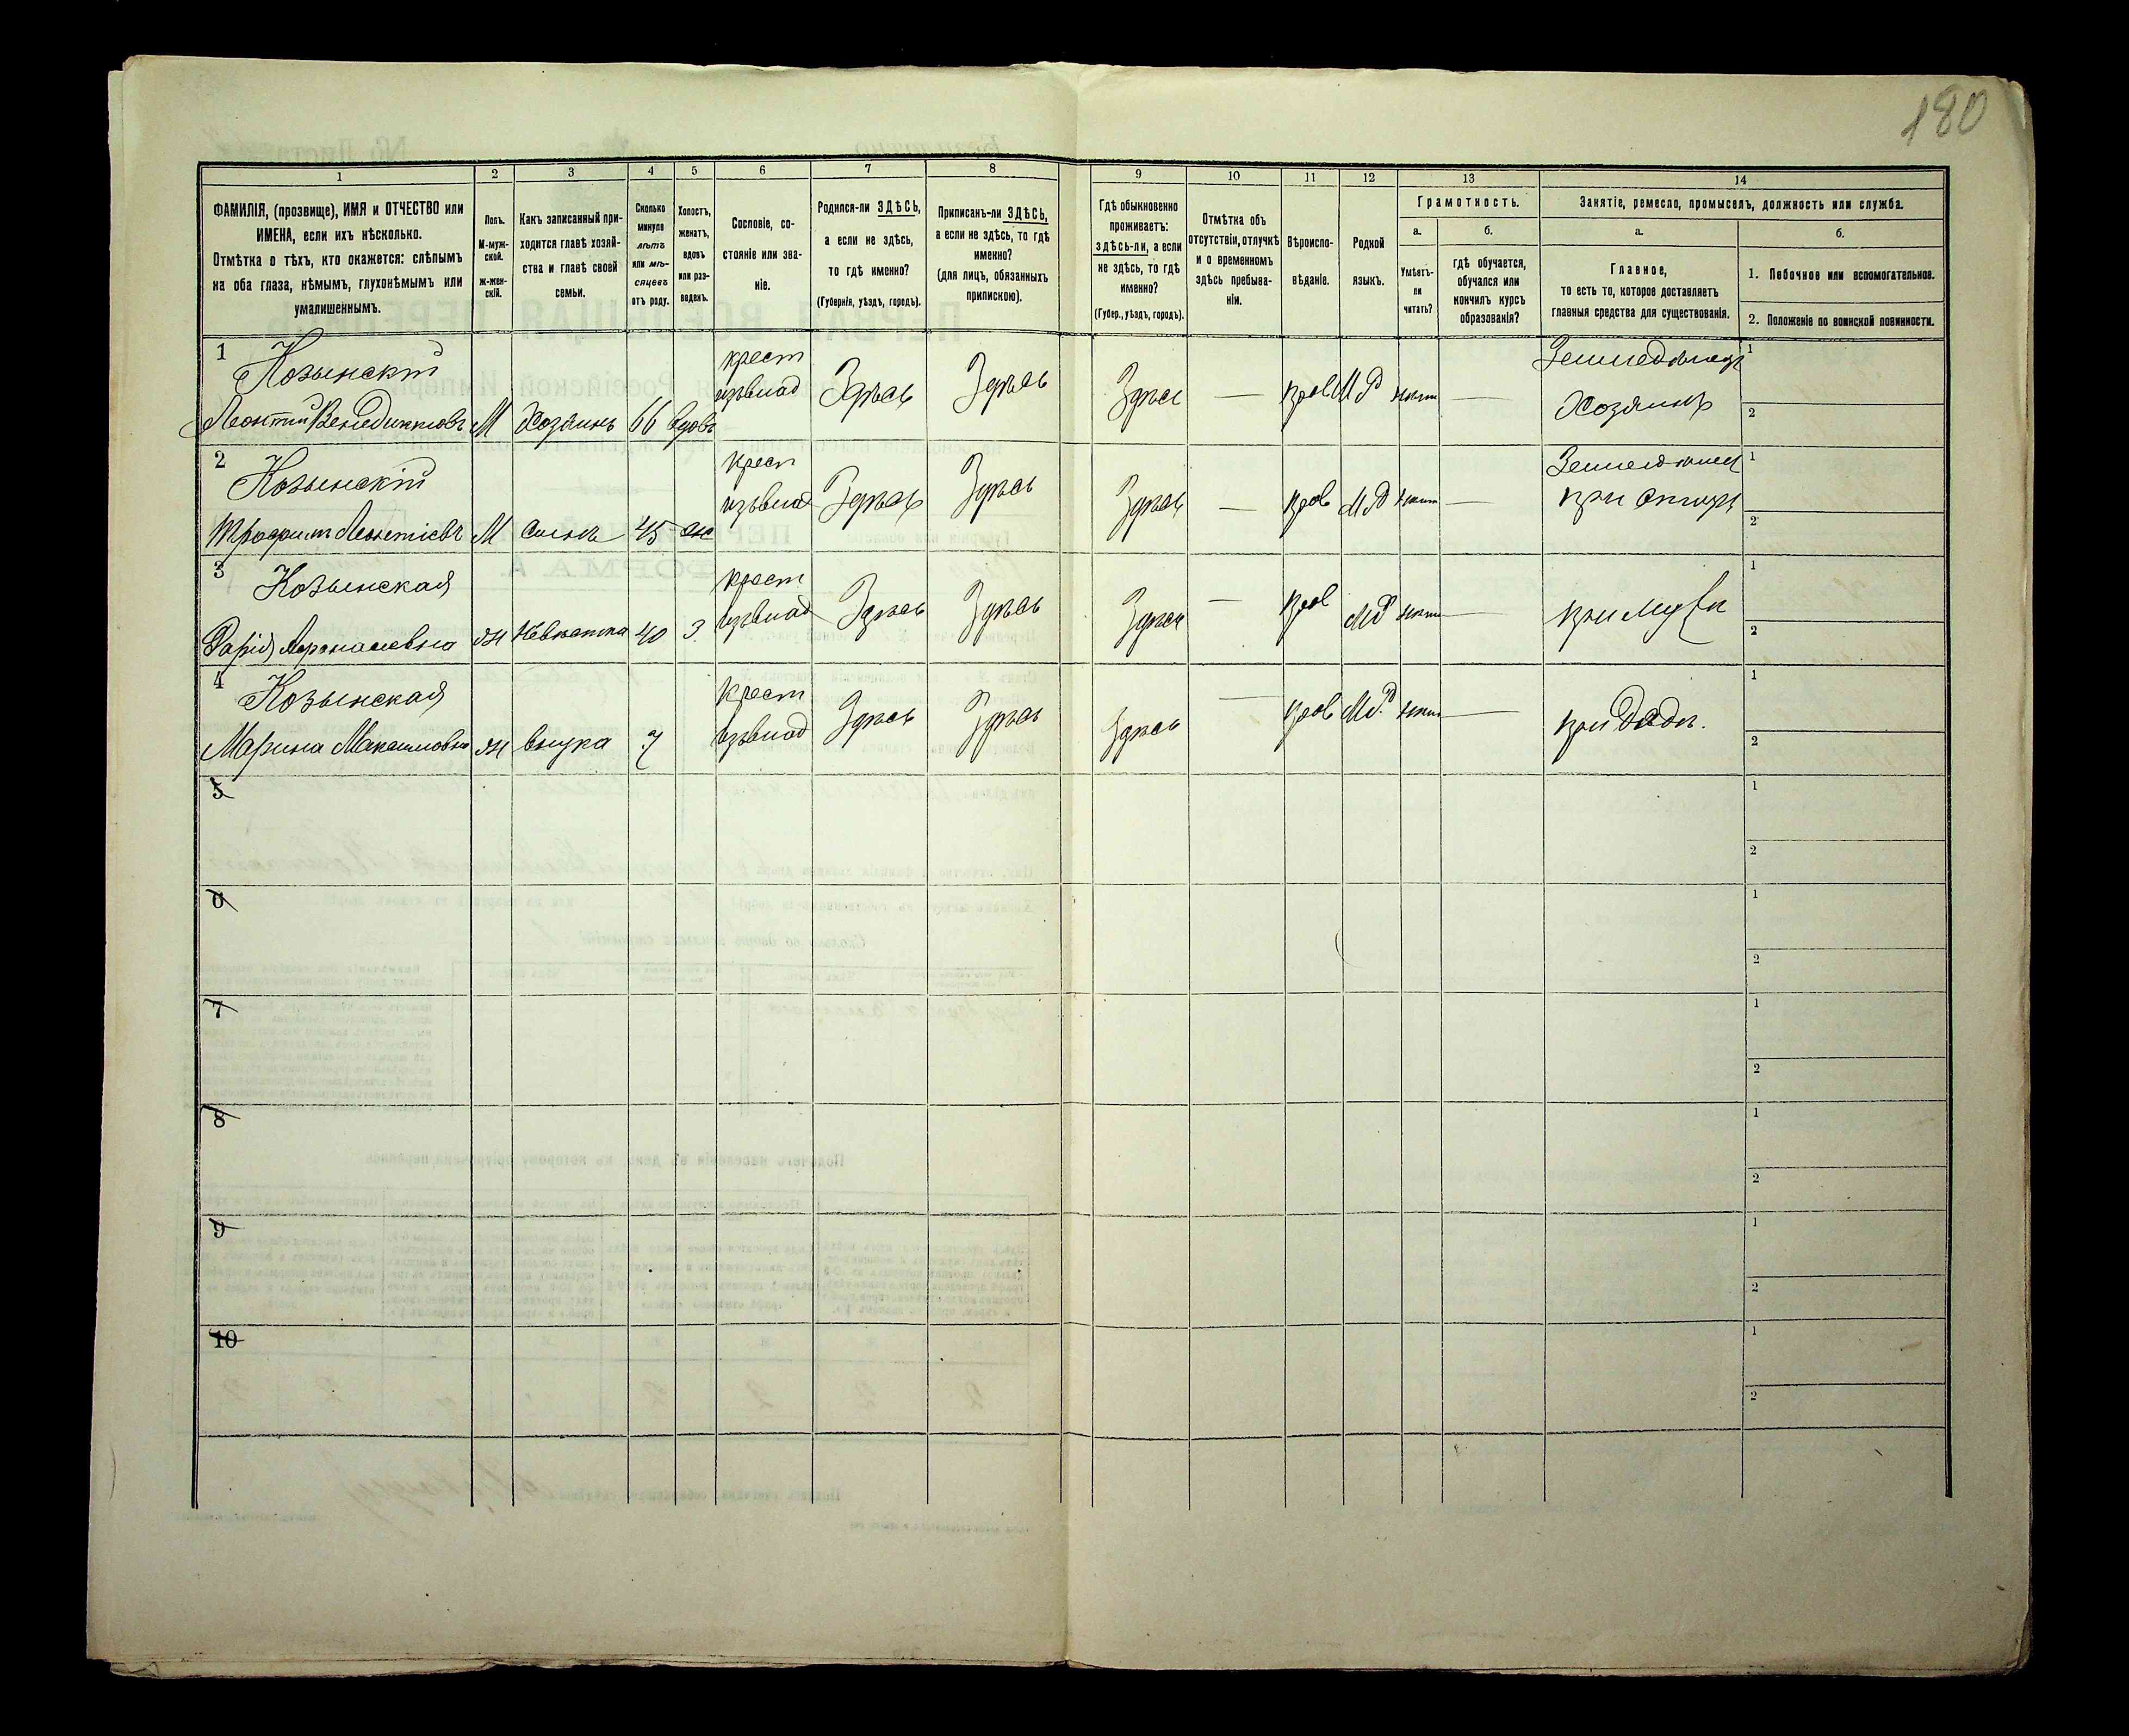 180
1
2
3
4
5
6
7
8
9
10
11
12
13
14
ФАМИЛІЯ, (прозвище), ИМЯ и ОТЧЕСТВО или
ИМЕНА, если ихъ нѣсколько.
Отмѣтка о тѣхъ, кто окажется: слѣпымъ
на оба глаза, нѣмымъ, глухонѣмымъ или
умалишеннымъ.
Полъ.
М-муж-
ской.
Ж-жен-
скій.
Какъ записанный при-
ходится главѣ хозяй-
ства и главѣ своей
семьи.
Сколько
минуло
лѣтъ
или мѣ-
сяцевъ
отъ роду.
Холостъ,
женатъ,
вдовъ
или раз-
веденъ.
Сословіе, со-
стояніе или зва-
ніе.
Родился-ли ЗДѢСЬ,
а если не здѣсь,
то гдѣ именно?
(Губернія, уѣздъ, городъ).
Приписанъ-ли ЗДѢСЬ,
а если не здѣсь, то гдѣ
именно?
(для лицъ, обязанныхъ
припискою).
Гдѣ обыкновенно
проживаетъ:
здѣсь-ли, а если
не здѣсь, то гдѣ
именно?
(Губер., уѣздъ, городъ).
Отмѣтка объ
отсутствіи, отлучкѣ
и о временномъ
здѣсь пребыва-
ніи.
Вѣроиспо-
вѣданіе.
Родной
языкъ.
Грамотность.
а.
Умѣетъ-
ли
читать?
б.
гдѣ обучается,
обучался или
кончилъ курсъ
образованія?
Занятіе, ремесло, промыселъ, должность или служба.
а.
Главное,
то есть то, которое доставляетъ
главныя средства для существованія.
б.
1. Побочное или вспомогательное.
2. Положеніе по воинской повинности.
1
Козынскій
Леонтій Венедиктовъ М Хозяинъ 66 вдовъ
крест
Здѣсь Здѣсь Здѣсь — М Р —
Хозяинъ
1
2
2
Козынскій
Леонтіевъ М Сынъ 45 ж
крест
Здѣсь Здѣсь Здѣсь — М Р —
при отцѣ
1
2
3
Козынская
Дарія ж Невѣстка 40 з.
крест
Здѣсь Здѣсь Здѣсь — М Р —
при мужѣ
1
2
4
Козынская
Марина Максимовна ж внука 7
крест
Здѣсь Здѣсь Здѣсь — М Р —
при
1
2
5
1
2
6
1
2
7
1
2
8
1
2
9
1
2
10
1
2